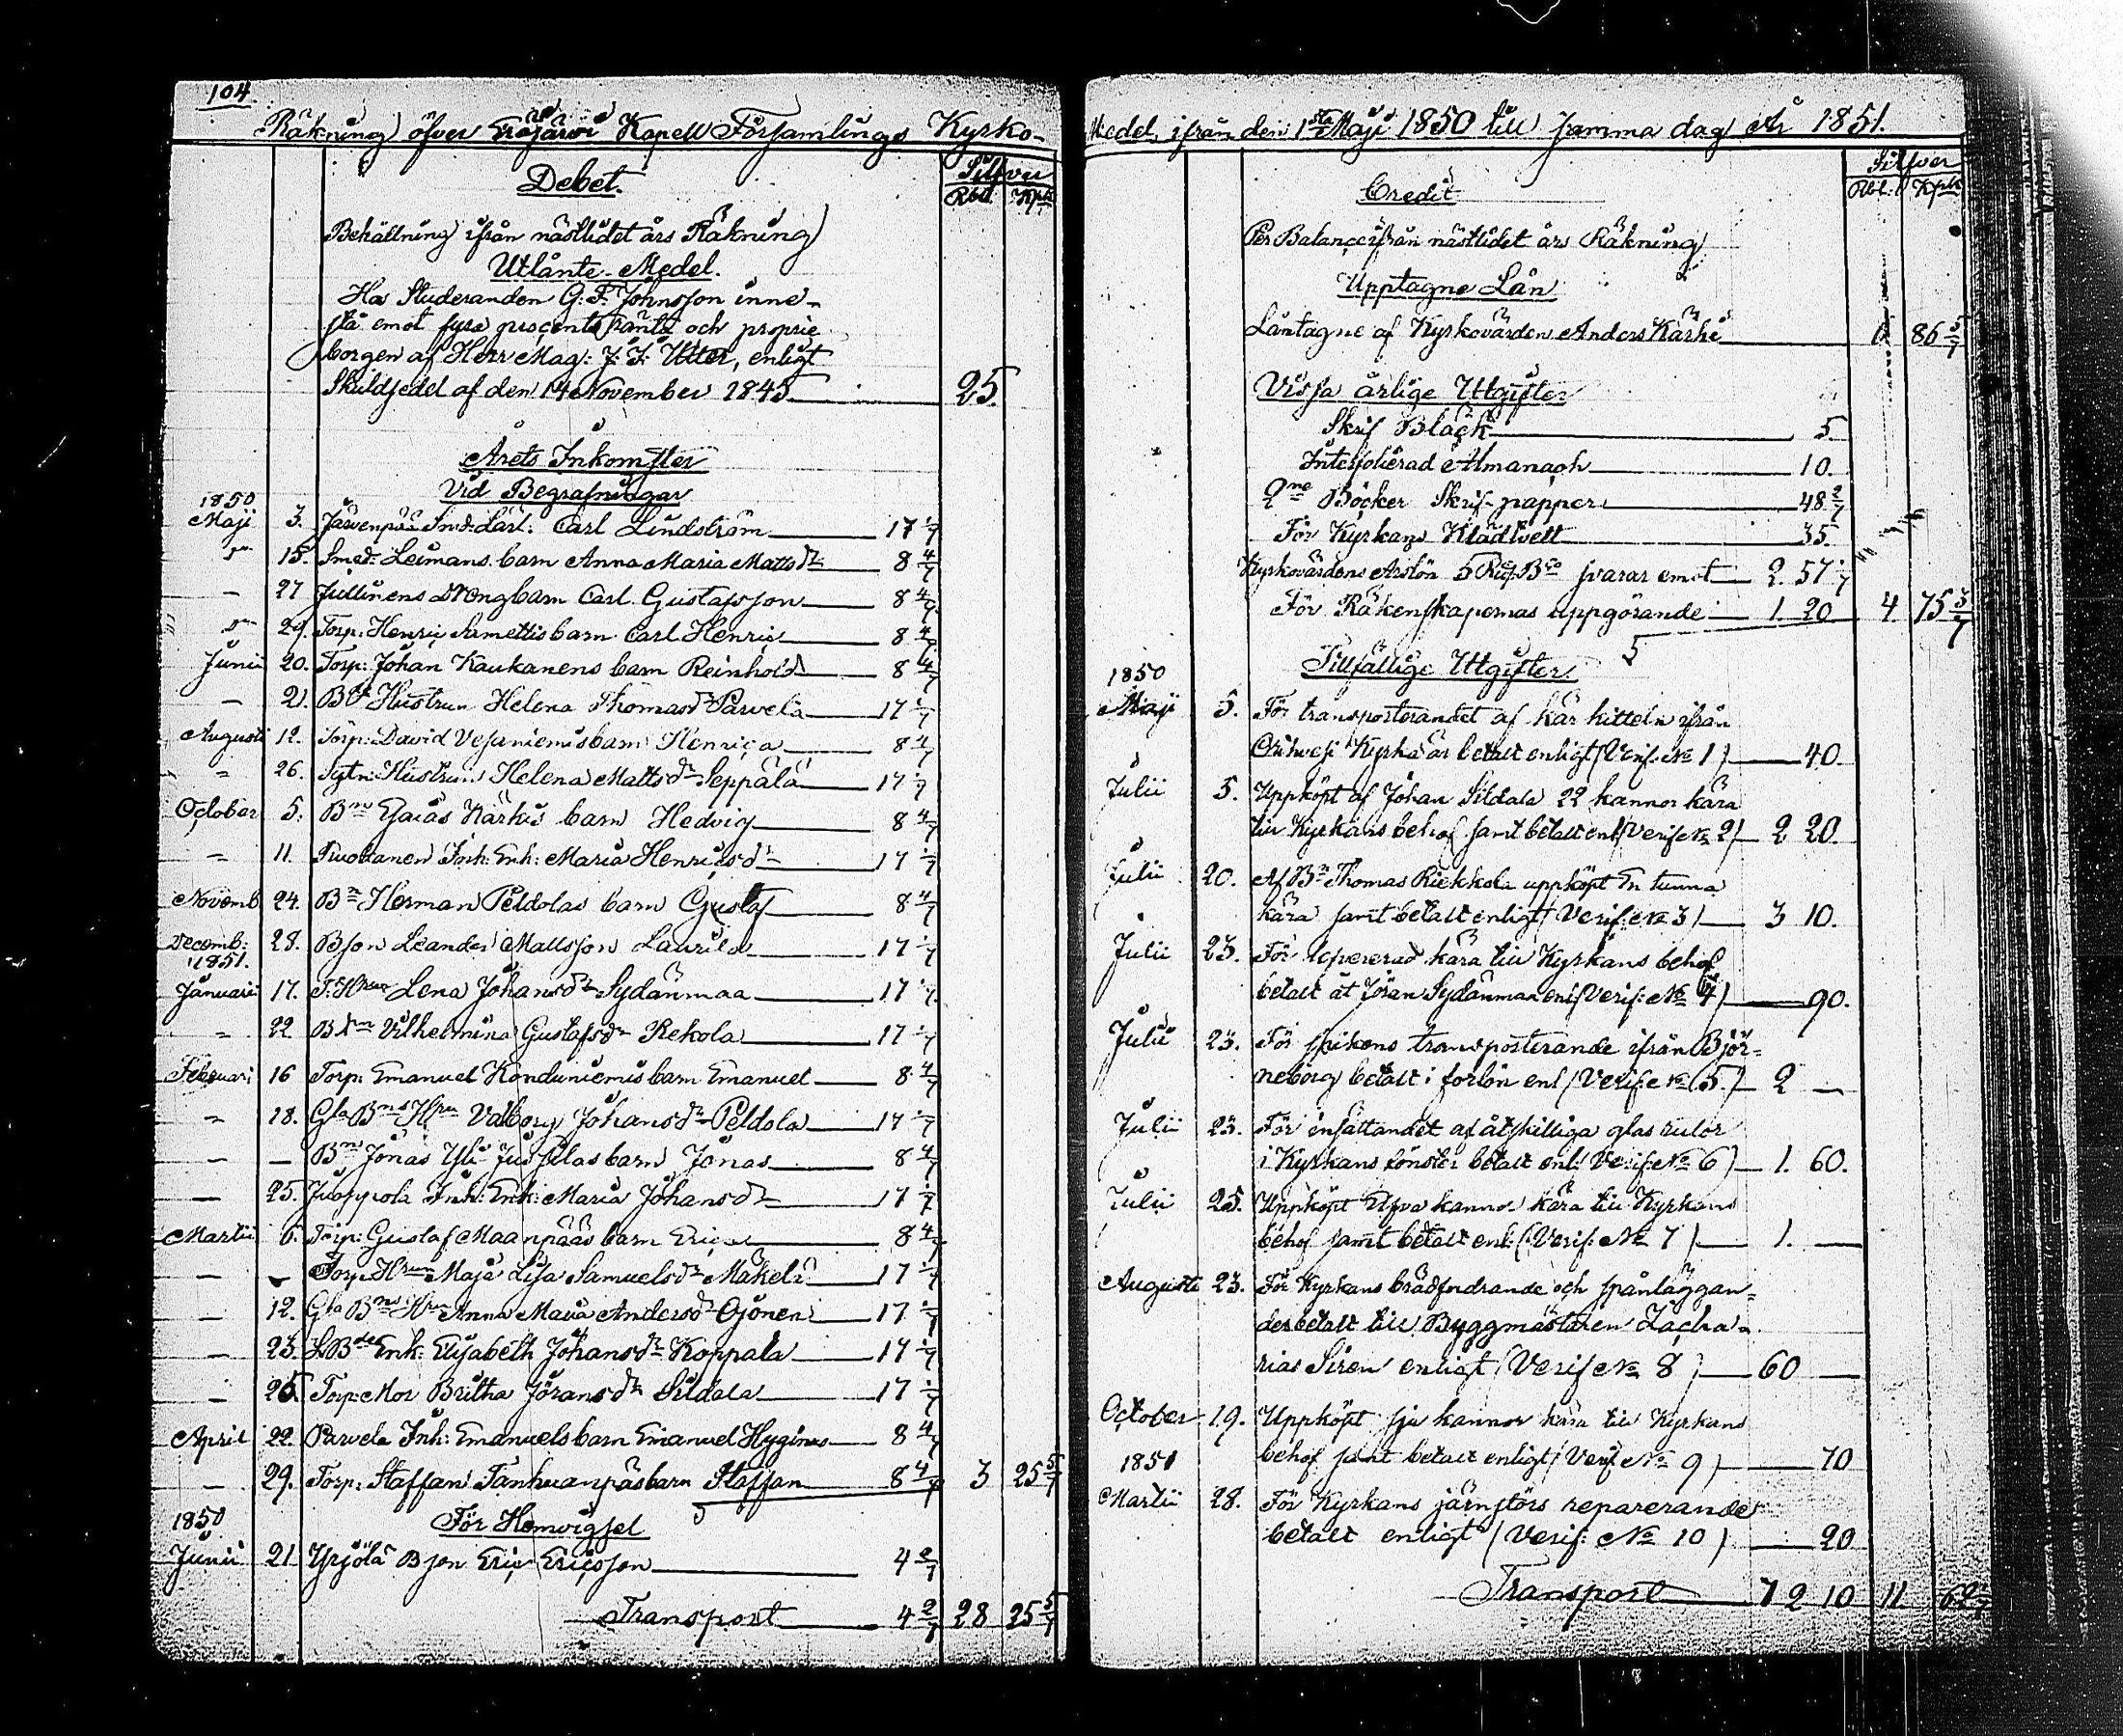 104
Räkning öfver Eräjärvi Kapell Församlings Kyrko-
Debet.
Silfver
Rbl. Kpk
Behållning ifrån nästlidet års Räkning
Utlånte Medel.
Hos Studeranden G. F. Johnsson inne-
stå emot fyra procents ränta och proprie
borgen af Herr Mag: J. F. Utter, enligt
Skuldsedel af den 14 November 1845 25.
Årets Inkomster
Vid Begrafningar
1850
Maji 3. Järvenpää Smd: Lärl: Carl Lindström 17 1/7
15. Smed: Leimans barn Anna Maria Matts dr 8 4/7
- 27 Jullinens Drengbarn Carl Gustafsson 8 4/7
29. Torp: Henric Samettis barn Carl Henric 8 4/7
Junii 20. Torp: Johan Kaukanens barn Reinhold 8 4/7
- 21. Hustrun Helena Thomasdr Parvela 17 1/7
Augusti 12. Torp: David Vesaniemis barn Henrica 8 4/7
" 26. Sytn: Hustrun Helena Mattsdr Seppälä 17 1/7
October 5. Bn Esaias Kärkis barn Hedvig 8 4/7
" 11. Tuokanen Inh: Enk: Maria Henricsdr 17 1/7
Novemb 24. Bn Herman Peldolas barn Gustaf 8 4/7
Decemb: 28. Bson Leander Mattsson Laurila 17 1/7
1851.
Januarii 17. T. Hrun Lena Johansdr Sydänmaa 17 1/7
" 22 Vilhelmina Gustafsdr Rekola 17 1/7
Februari 16 Torp: Emanuel Konduniemis barn Emanuel 8 4/7
" 18. Gla Bns Hru Valborg Johansdr Peldola 17 1/7
- - Bn Jonas Yli Jussilas barn Jonas 8 4/7
- 25. Juoppola Inh: Enk: Maria Johansdr 17 1/7
Martii 6. Torp: Gustaf Maanpääs barn Erica 8 4/7
- - Torp: Hrun Maja Lisa Samuelsdr Mäkelä 17 1/7
- 12. Gla Bns Hru Anna Maria Andersdr Ojonen 17 1/7
- 23. Enk: Elisabeth Johansdr Koppala 17 1/7
- 26. Torp: Mor Britha Jöransdr Sildala 17 1/7
April 22. Parvela Inh: Emanuels barn Emanuel Hyginus 8 4/7
- 29. Torp: Staffan Tanhuanpäs barn Staffan 8 4/7 3 25 5/7
1850
För Hemvigsel
Junii 21 Yrjölä Bson Eric Ericsson 4 2/7
Transport 4 2/7 28 25 5/7
Medel, ifrån den 1sta Maji 1850 till samma dag År 1851.
Credit
Silfver
Rbl: Kpk
Per Balance ifrån nästlidet års Räkning
Upptagne Lån
Låntagne af Kyrkovärden Anders Kärki 6 86 5/7
Vissa årlige Utgifter
Skrif Bläck 5
Interfolierad Almanach 10.
2ne Böcker Skrif-papper 48 2/7
För Kyrkans Klädtvett 35.
Kyrkovärdens Årslön 5 Rub. Bco svarar emot 2 57 1/7
För Räkenskapernas uppgörande 1 20 4 75 3/7
Tillfällige Utgifter
1850
Maji 5. För transporterandet af kär kitteln ifrån
Orihvesi Kyrka är betalt enligt (Verif: No 1) 40.
Julii 5. Uppköpt af Johan Sildala 22 kannor kära
till Kyrkans behof samt betalt enl (Verif No 2) 2 20.
Julii 20. Af Bn Thomas Riekkola uppköpt En tunna
kära samt betalt enligt (Verif: No 3) 3 10.
Julii 23. För levererad kära till Kyrkans behof
betalt åt Jöran Sydänmaa enl (Verif: No 4) 90.
Julii 23. För spikens transporterande ifrån Björ-
neborg betalt i forlön enl (Verif: No 5.) 2 —
Julii 23. För insättandet af åtskilliga glas rutor
i Kyrkans fönster betalt enl (Verif: No 6) 1. 60.
Julii 25. Uppköpt kannor kära till Kyrkans
behof samt betalt enl: (Verif: No 7) 1. —
Augusti 23. För Kyrkans brädfordrande och spånläggan-
de betalt till Byggmästaren Zacha-
rias Siren enligt (Verif No 8) 60 —
October 19. Uppköpt sju kannor kära till Kyrkans
behof samt betalt enligt (Verif No 9) 70
1851
Martii 28. För Kyrkans järnstörs reparerande
betalt enligt (Verif: No 10) 20
Transport 72 10 11 62 1/7